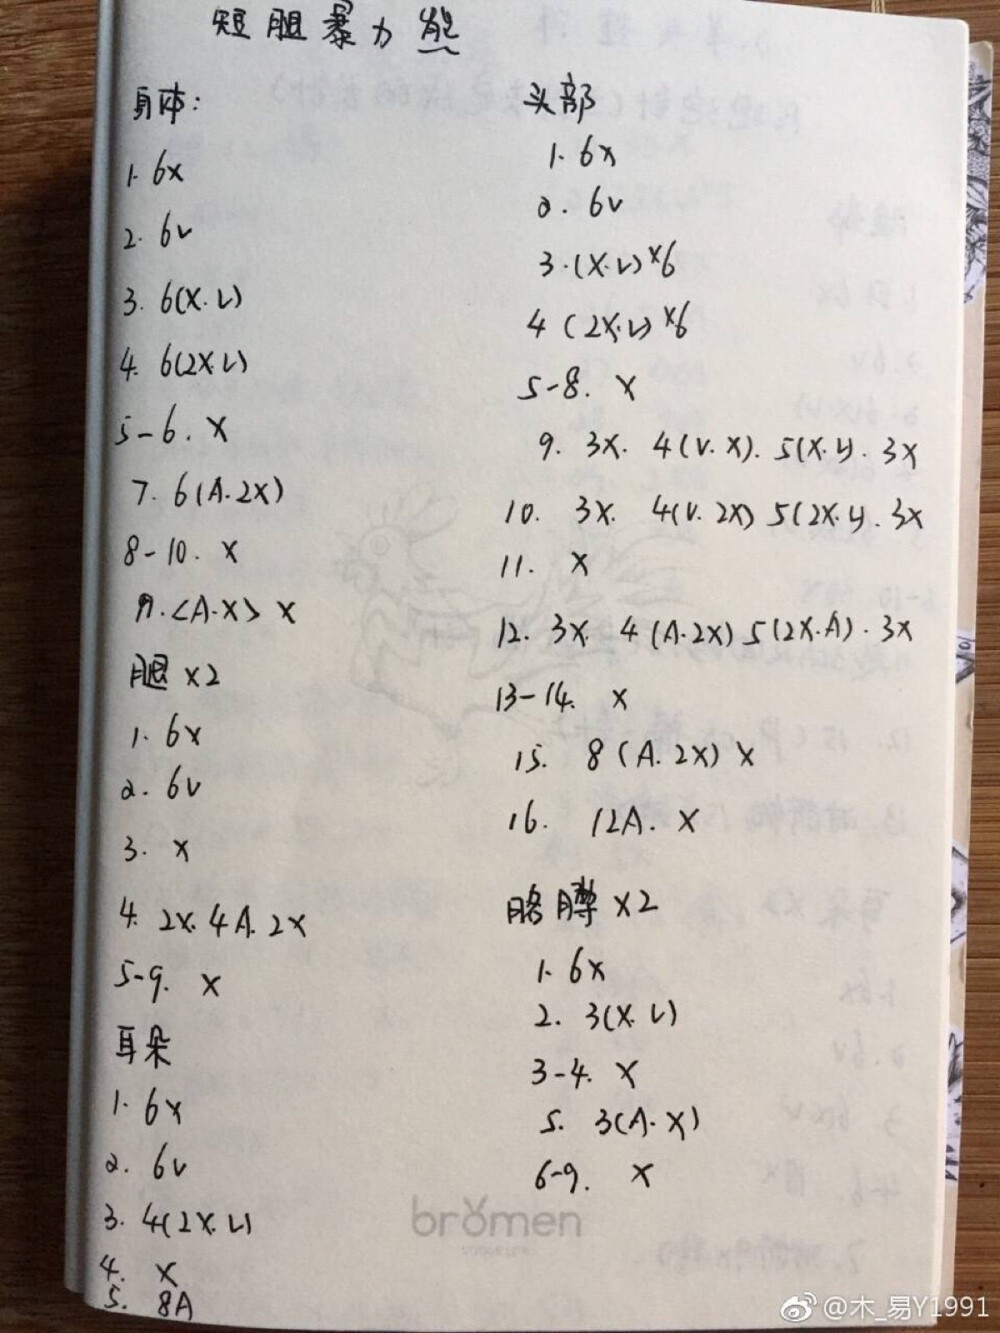 短腿暴力熊
身体:
1. 6x
2. 6v
3. 6(x.v)
4. 6(2x.v)
5-6. x
7. 6(A.2x)
8-10. x
11. <A.x> x
腿 x2
1. 6x
2. 6v
3. x
4. 2x. 4A. 2x
5-9. x
耳朵
1. 6x
2. 6v
3. 4(2x.v)
4. x
5. 8A
头部
1. 6x
2. 6v
3. (x.v)x6
4 (2x.v)x6
5-8. x
9. 3x. 4(v.x). 5(x.v). 3x
10. 3x. 4(v.2x) 5(2x.v). 3x
11. x
12. 3x. 4(A.2x) 5(2x.A). 3x
13-14. x
15. 8(A.2x) x
16. 12A. x
胳膊 x2
1. 6x
2. 3(x.v)
3-4. x
5. 3(A.x)
6-9. x
bromen
@木_易Y1991